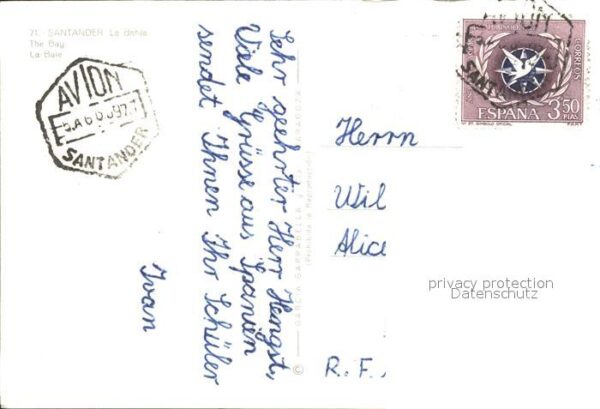 71. - SANTANDER La Bahía
The Bay
La Baie
AVION
SANTANDER
Sehr geehrter Herr Hengst,
Viele Grüsse aus Spanien
sendet Ihnen Ihr Schüler
Ivan
GARCIA GARRABELLA
ZARAGOZA
(Prohibida la Reproducción)
CORREOS
ESPAÑA
3,50
PTAS
SANT
Herrn
Wil
Alice
R. F.
privacy protection
Datenschutz